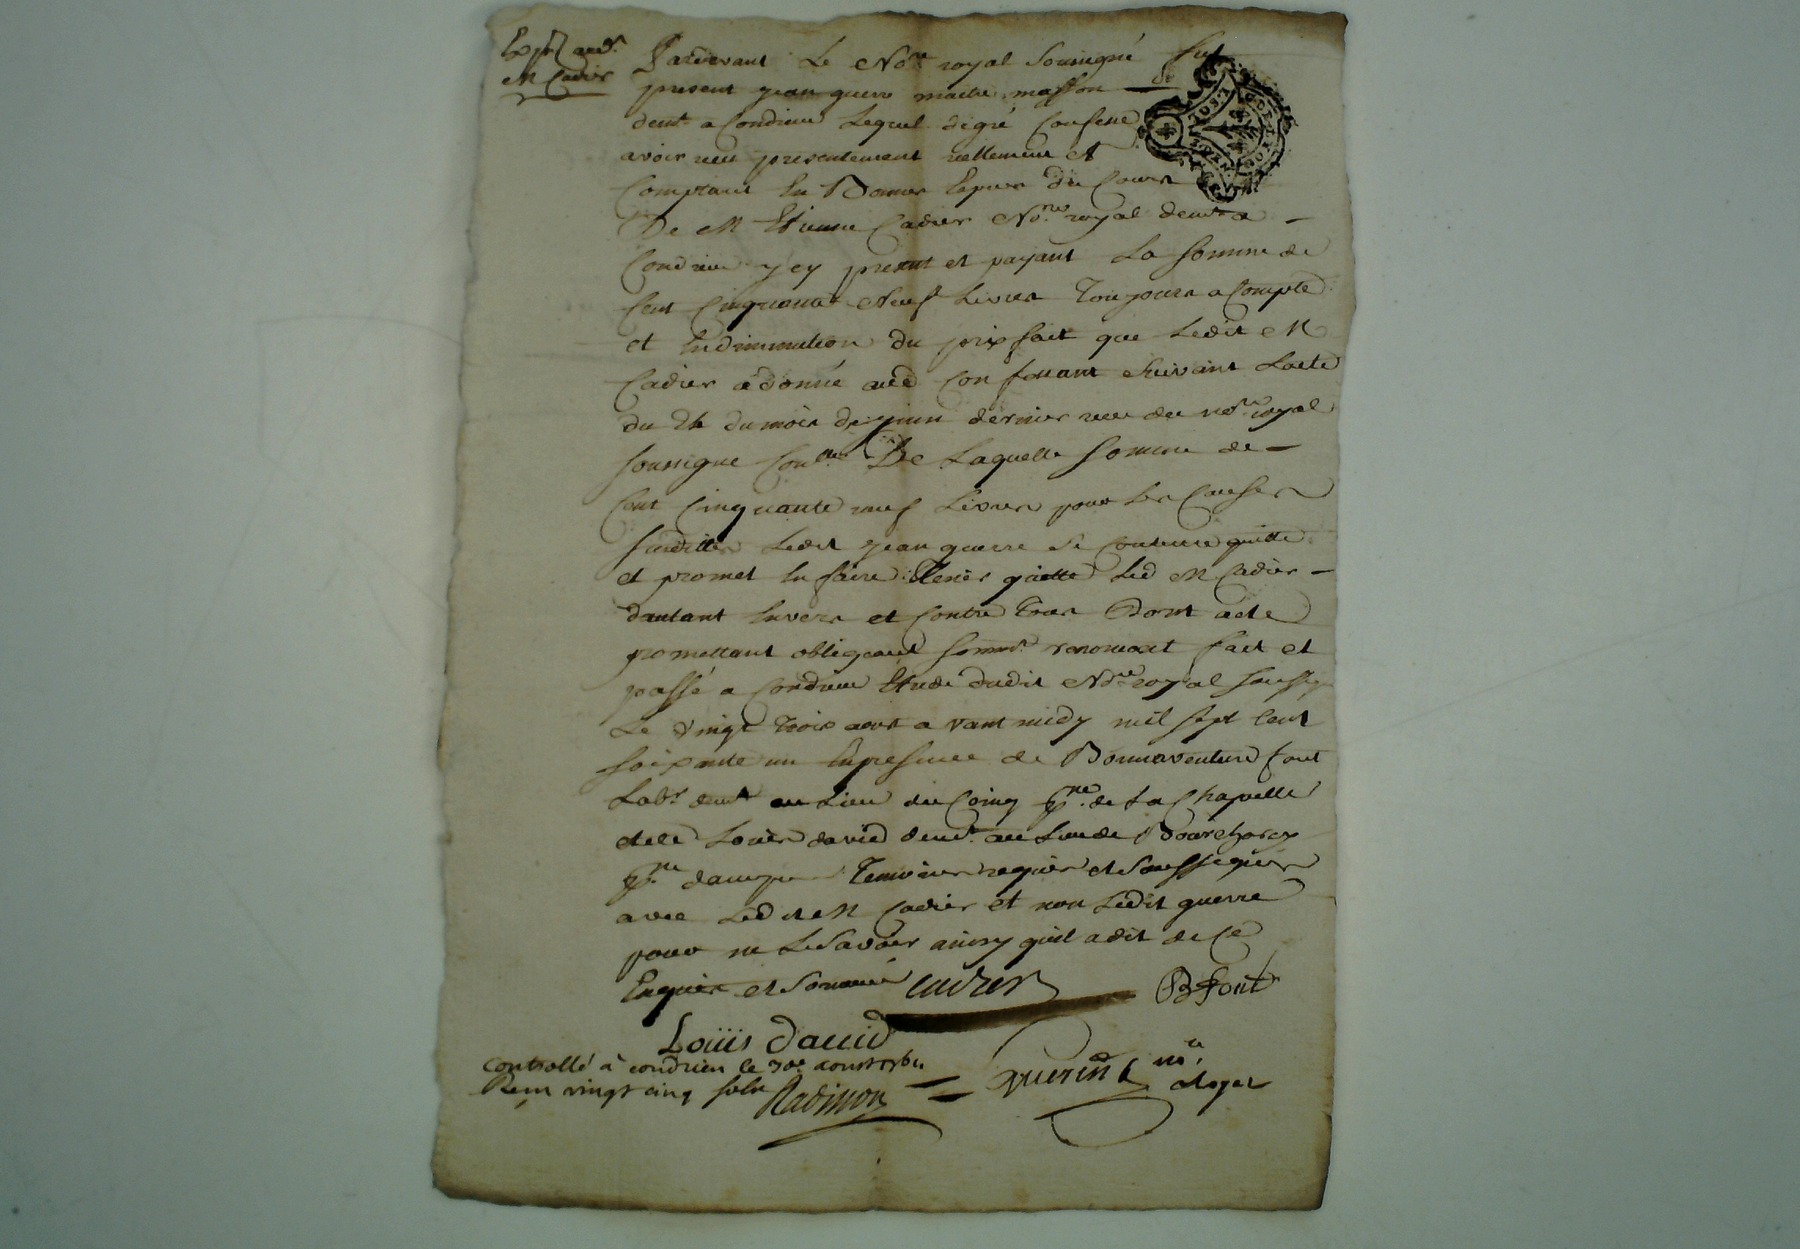 Exp. aud.
M Cadier
Pardevant Le No.re royal Soussigné fut
present jean guerre maitre masson
demt a Condrieu Lequel de gré Confesse
avoir reçu presentement rellement et
Comptant En Bonnes Especes du Cours
De M Etienne Cadier No.re royal demt a
Condrieu y cy present et payant La Somme de
Cent Cinquante Neuf Livres Toujours a Compte
et Endiminution du prix fait que Ledit M
Cadier a donné aud Confessant Suivant Lacte
du 24 du mois de juin dernier reçu du no.re royal
soussigne De Laquelle Somme de
Cent Cinquante neuf Livres pour Les Causes
susdittes Ledit jean guerre Se Contente quitte
et promet En faire Tenir quitte Led M Cadier
dautant Envers et Contre Tous Dont acte
promettant obligeant renoncant fait et
passé a Condrieu Etude dudit No.re royal Soussig
Le vingt Trois aout avant midy mil sept Cent
soixante un Enpresence de Bonnaventure font
Lab.r demt au Lieu du Coing p.sse de La Chapelle
et de Louis david demt au Lieu de
p.sse Temoins requis et Soussignés
avec Ledit M Cadier et non Ledit guerre
pour ne Le Savoir ainsy quil a dit de Ce
Enquis et Sommé Cadier B Font
Loüis Dauid
controllé à condrieu le 30e aoust 1761
Reçu vingt cinq sols Radisson Guerin n.re
royal